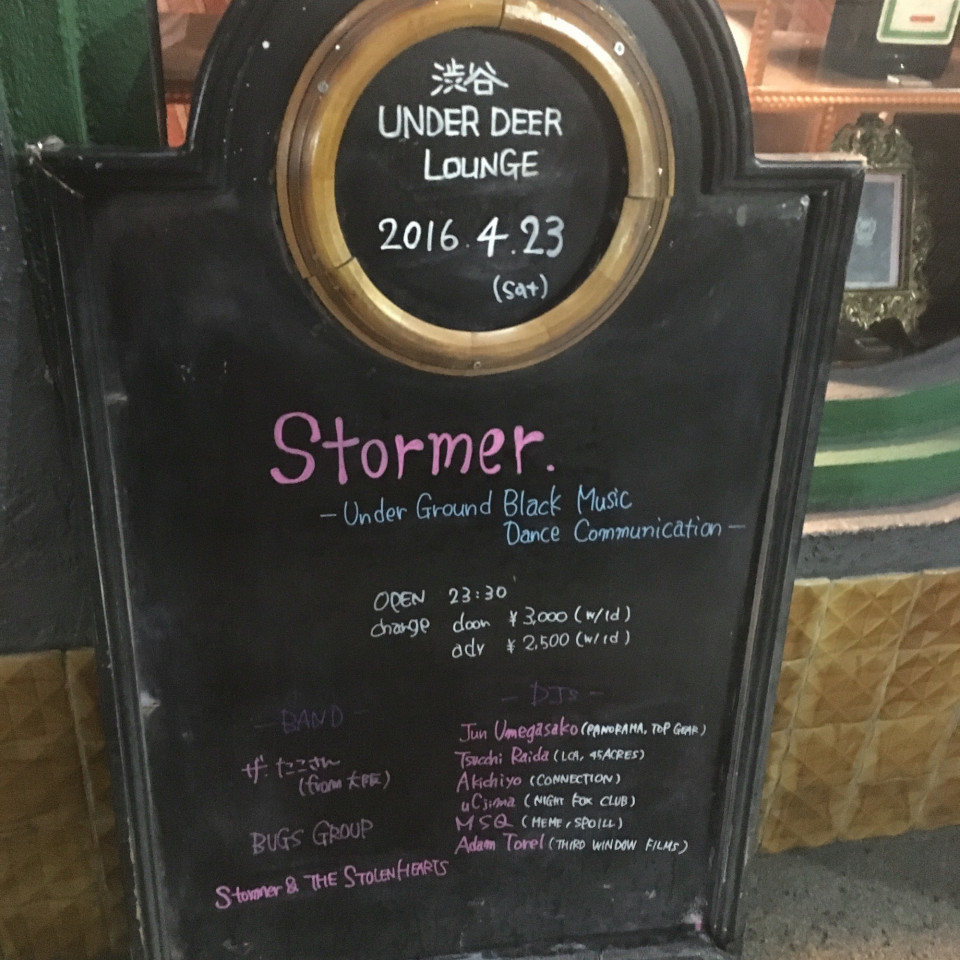 渋谷
UNDER DEER
LOUNGE
2016.4.23
(sat)
Stormer.
-Under Ground Black Music
Dance Communication-
OPEN 23:30
charge door ¥3,000 (w/1d)
adv ¥2,500 (w/1d)
-BAND-
ザ・たこさん
(from 大阪)
BUGS GROUP
Stormer & THE STOLEN HEARTS
-DJs-
Jun Umegasako (PANORAMA, TOP GEAR)
Tsucchi Raida (LCR, 45ACRES)
Akichiyo (CONNECTION)
uCjima (NIGHT FOX CLUB)
MSQ (MEME, SPOILL)
Adam Torel (THIRD WINDOW FILMS)